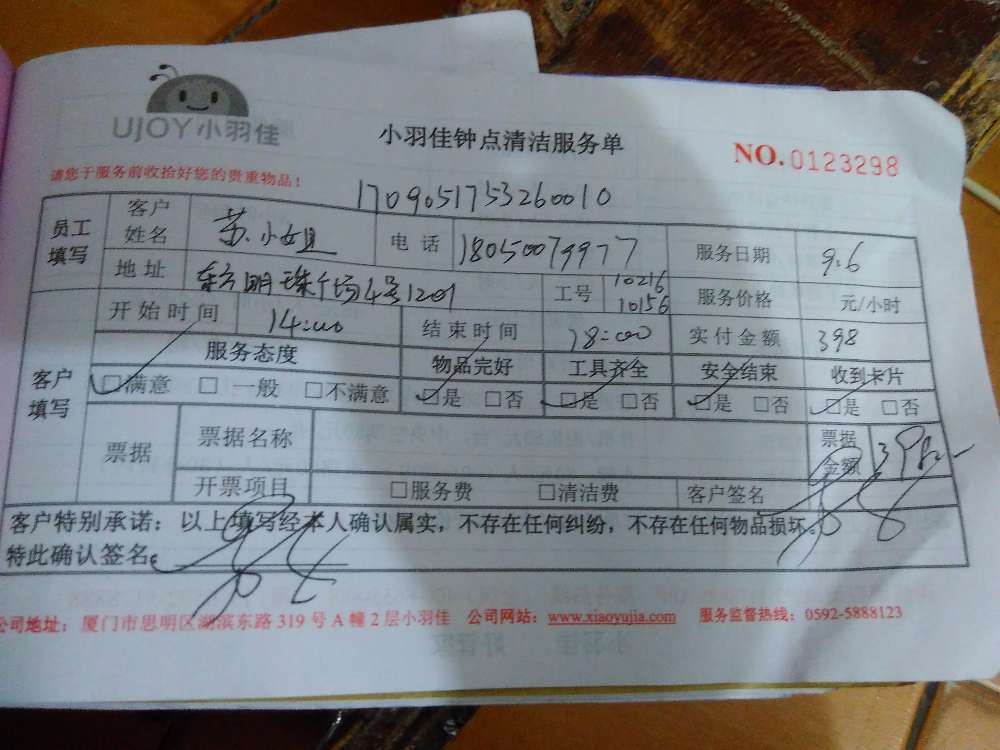 UJOY小羽佳
小羽佳钟点清洁服务单
NO.0123298
请您于服务前收拾好您的贵重物品！
1709051753260010
员工填写 客户姓名 苏小姐 电话 18050079977 服务日期 9.6
地址 东方明珠广场4号1201 工号 10216 10156 服务价格 元/小时
客户填写 开始时间 14:00 结束时间 18:00 实付金额 398
服务态度 物品完好 工具齐全 安全结束 收到卡片
☑满意 □一般 □不满意 ☑是 □否 ☑是 □否 ☑是 □否 ☑是 □否
票据 票据名称 票据金额 398
开票项目 □服务费 □清洁费 客户签名
客户特别承诺：以上填写经本人确认属实，不存在任何纠纷，不存在任何物品损坏。
特此确认签名。
公司地址：厦门市思明区湖滨东路 319 号 A 幢 2 层小羽佳 公司网站：www.xiaoyujia.com 服务监督热线：0592-5888123